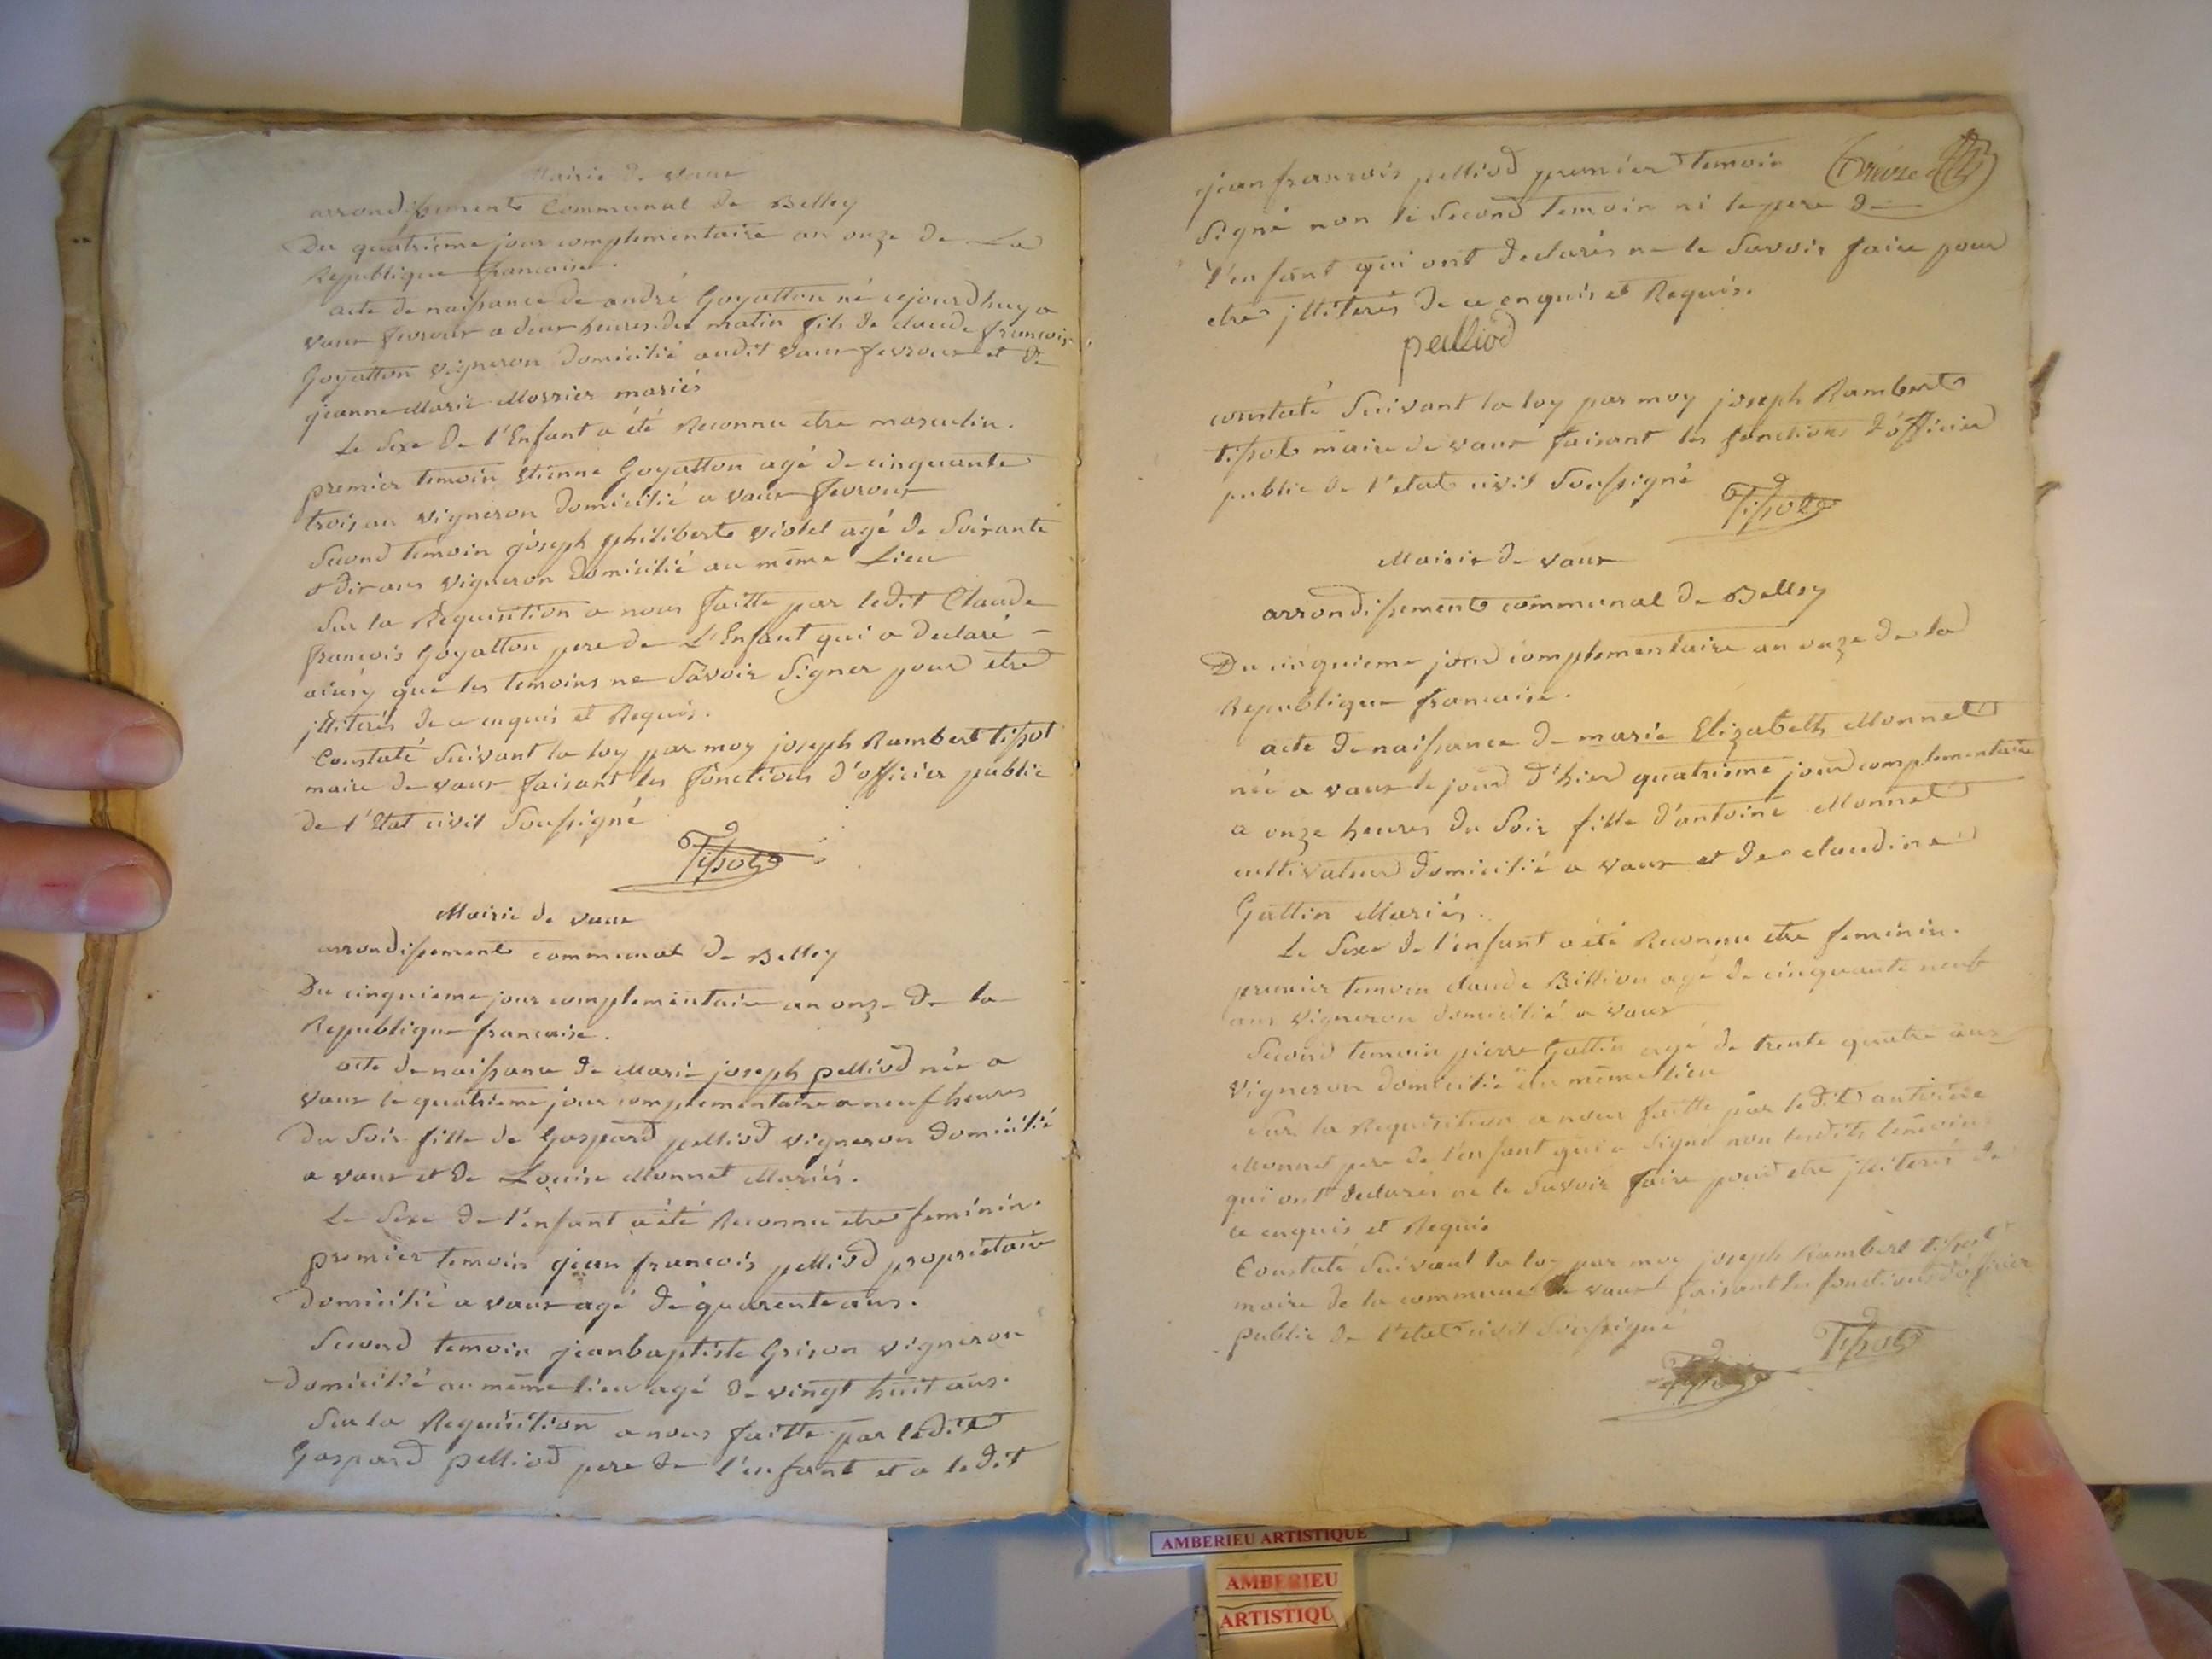 Mairie de vaux
arrondissement Communal de Belley
Du quatrieme jour complementaire an onze de La
Republique francaise.
acte de naissance de andré Goyatton né cejourdhuy a
vaux fevroux a deux heures du matin fils de claude francois
Goyatton vigneron domicilié audit vaux fevroux et de
jeanne Marie Morrier mariés
Le Sexe de l'Enfant a été Reconnu etre masculin.
premier temoin Etienne Goyatton agé de cinquante
trois an vigneron domicilié a vaux fevroux
Second temoin joseph philibert violet agé de Soixante
et dix ans vigneron domicilié au même Lieu
Sur la Requisition a nous faitte par ledit Claude
francois Goyatton pere de L'Enfant qui a declaré
ainsy que les temoins ne Savoir Signer pour etre
jlliterés de ce enquis et Requis.
Constaté Suivant la loy par moy joseph Rambert tissot
maire de vaux faisant les fonctions d'officier public
de l'Etat civil Soussigné
Tissot
Mairie de vaux
arrondissement communal de Belley
Du cinquieme jour complementaire an onze de la
Republique francaise.
acte de naissance de Marie joseph pelliod née a
vaux le quatrieme jour complementaire a neuf heures
du Soir fille de Gaspard pelliod vigneron domicilié
a vaux et de Louise Monnet Mariés.
Le Sexe de l'enfant a été Reconnu etre feminin.
premier temoin jean francois pelliod proprietaire
domicilié a vaux agé de quarente ans.
Second temoin jeanbaptiste Grison vigneron
domicilié au même lieu agé de vingt huit ans.
Sur la Requisition a nous faitte par ledit
Gaspard pelliod pere de l'enfant et a ledit
jean francois pelliod premier temoin
Treize
Signé non le Second temoin ni le pere de
l'enfant qui ont declarés ne le Savoir faire pour
etre jlliterés de ce enquis et Requis.
pelliod
constaté Suivant la loy par moy joseph Rambert
tissot maire de vaux faisant les fonctions d'officier
public de l'etat civil Soussigné
Tissot
Mairie de vaux
arrondissement communal de Belley
Du cinquieme jour complementaire an onze de la
Republique francaise.
acte de naissance de marie Elizabeth Monnet
née a vaux le jour d'hier quatrieme jour complementaire
a onze heures du Soir fille d'antoine Monnet
cultivateur domicilié a vaux et de claudine
Gattin Mariés.
Le Sexe de l'enfant a été Reconnu etre feminin.
premier temoin claude Billion agé de cinquante neuf
ans vigneron domicilié a vaux
Second temoin pierre Gattin agé de trente quatre ans
vigneron domicilié au même lieu
Sur la Requisition a nous faitte par ledit antoine
Monnet pere de l'enfant qui a Signé non lesdits temoins
qui ont declarés ne le Savoir faire pour etre jlliterés de
ce enquis et Requis
Constaté Suivant la loy par moy joseph Rambert tissot
maire de la commune de vaux faisant les fonctions d'officier
public de l'etat civil Soussigné
Tissot
AMBERIEU ARTISTIQUE
AMBERIEU
ARTISTIQU